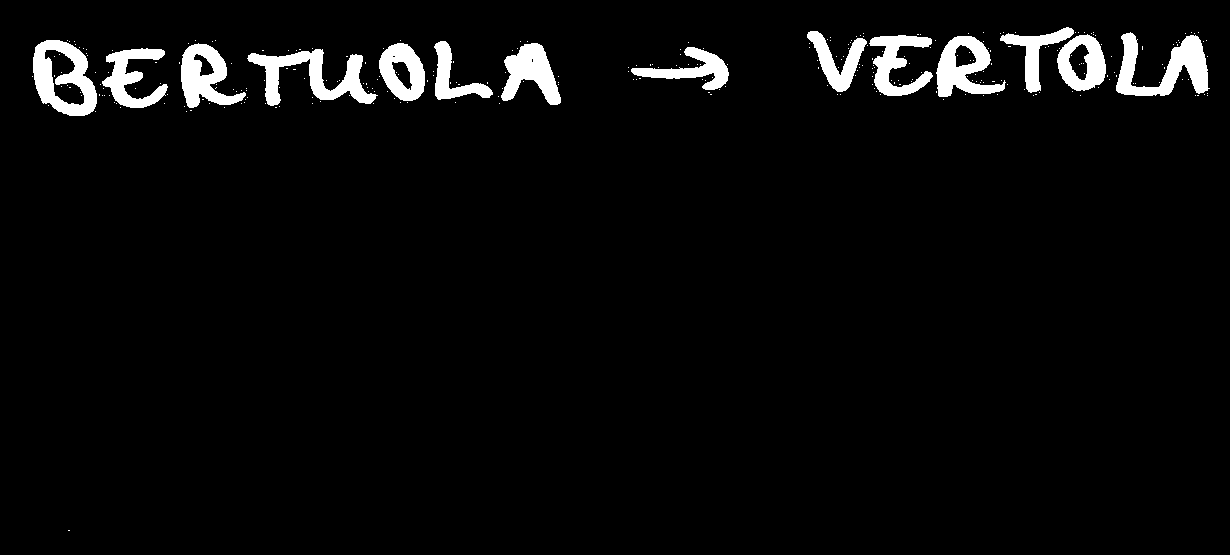 BERTUOLA → VERTOLA